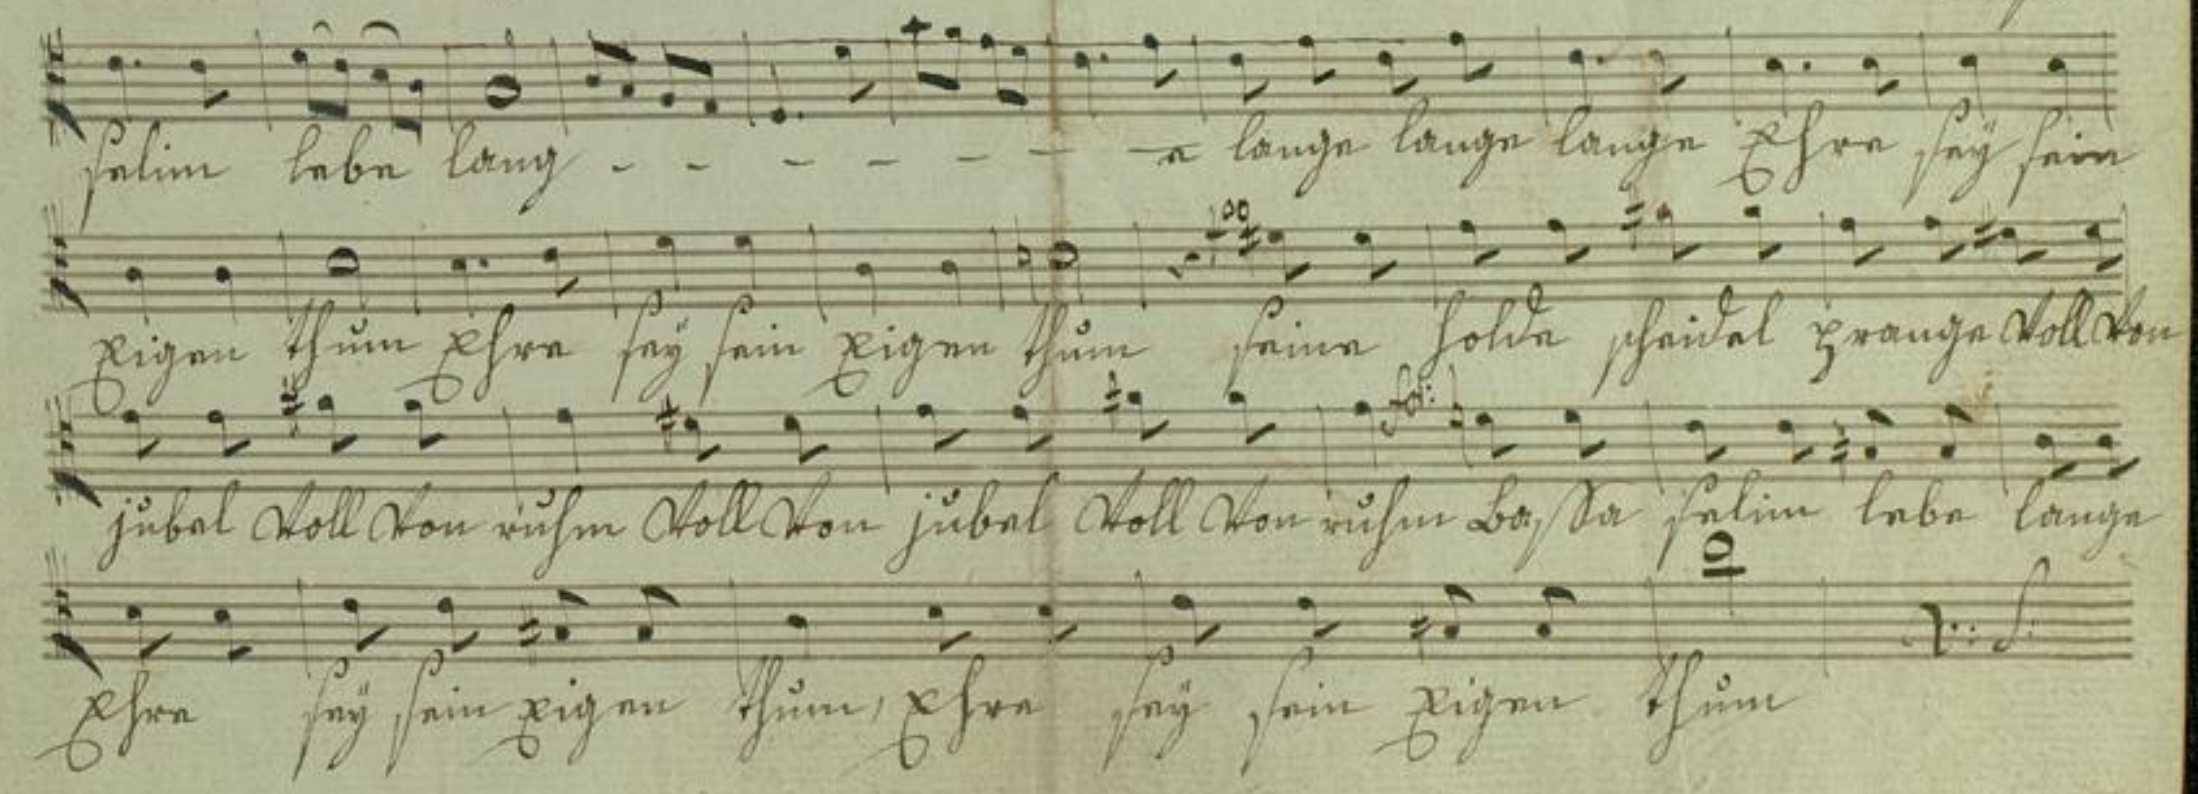 selim lebe lang - - - - - - - e lange lange lange Ehre seÿ sein
Eigen thum Ehre seÿ sein Eigen thum seine holde scheidel prange Voll Von
jubel Voll Von ruhm Voll Von jubel Voll Von ruhm Bassa selim lebe lange
for:
Ehre seÿ sein eigen thum, Ehre seÿ sein Eigen thum